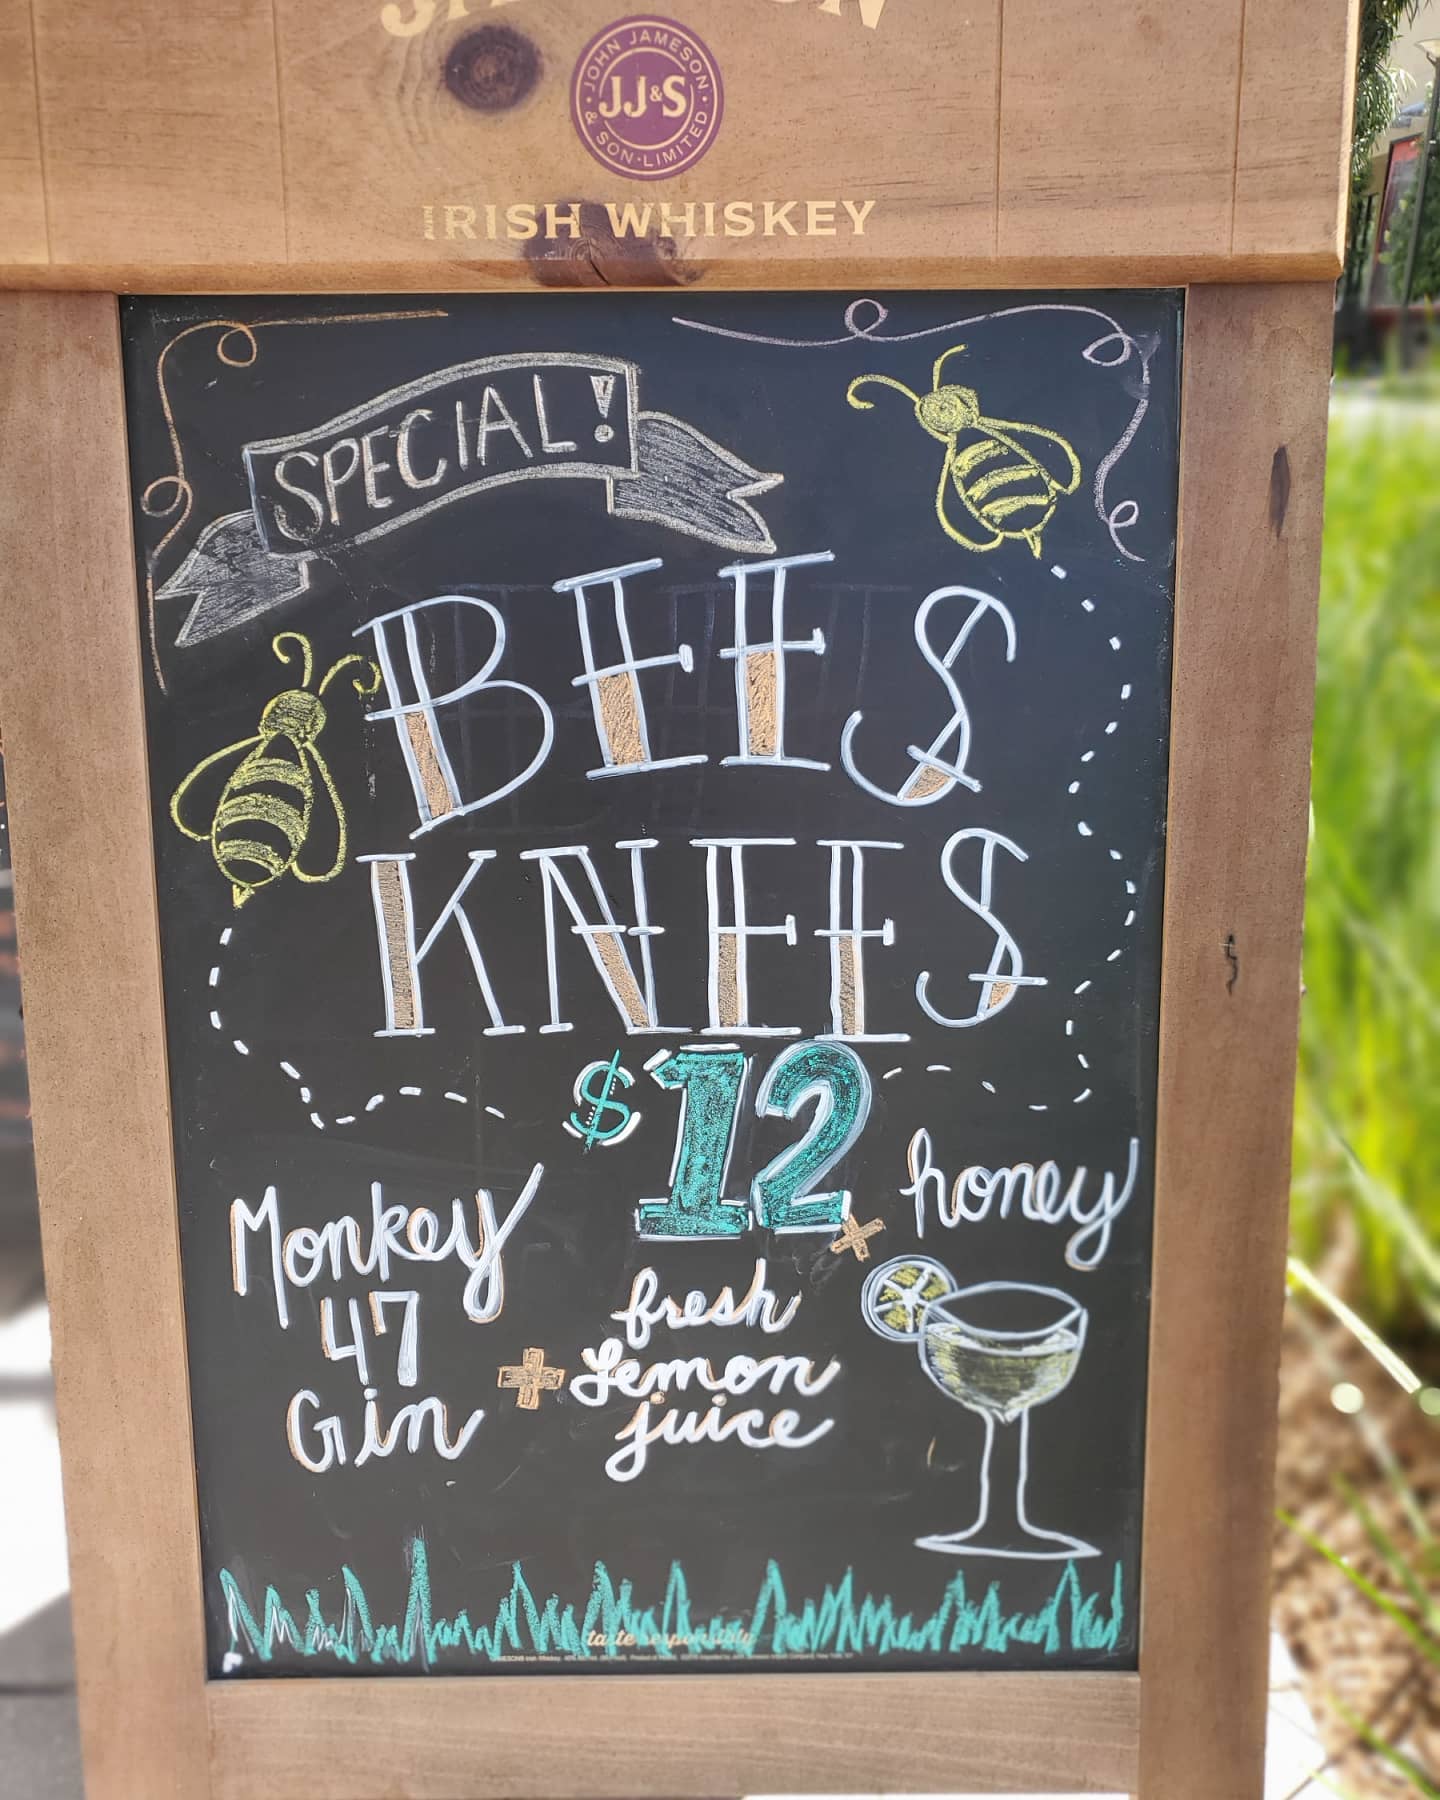 JOHN JAMESON
JJ&S
& SON · LIMITED
IRISH WHISKEY
SPECIAL!
BEES
KNEES
$12
Monkey
47
Gin
+
fresh
Lemon
juice
+
honey
taste responsibly